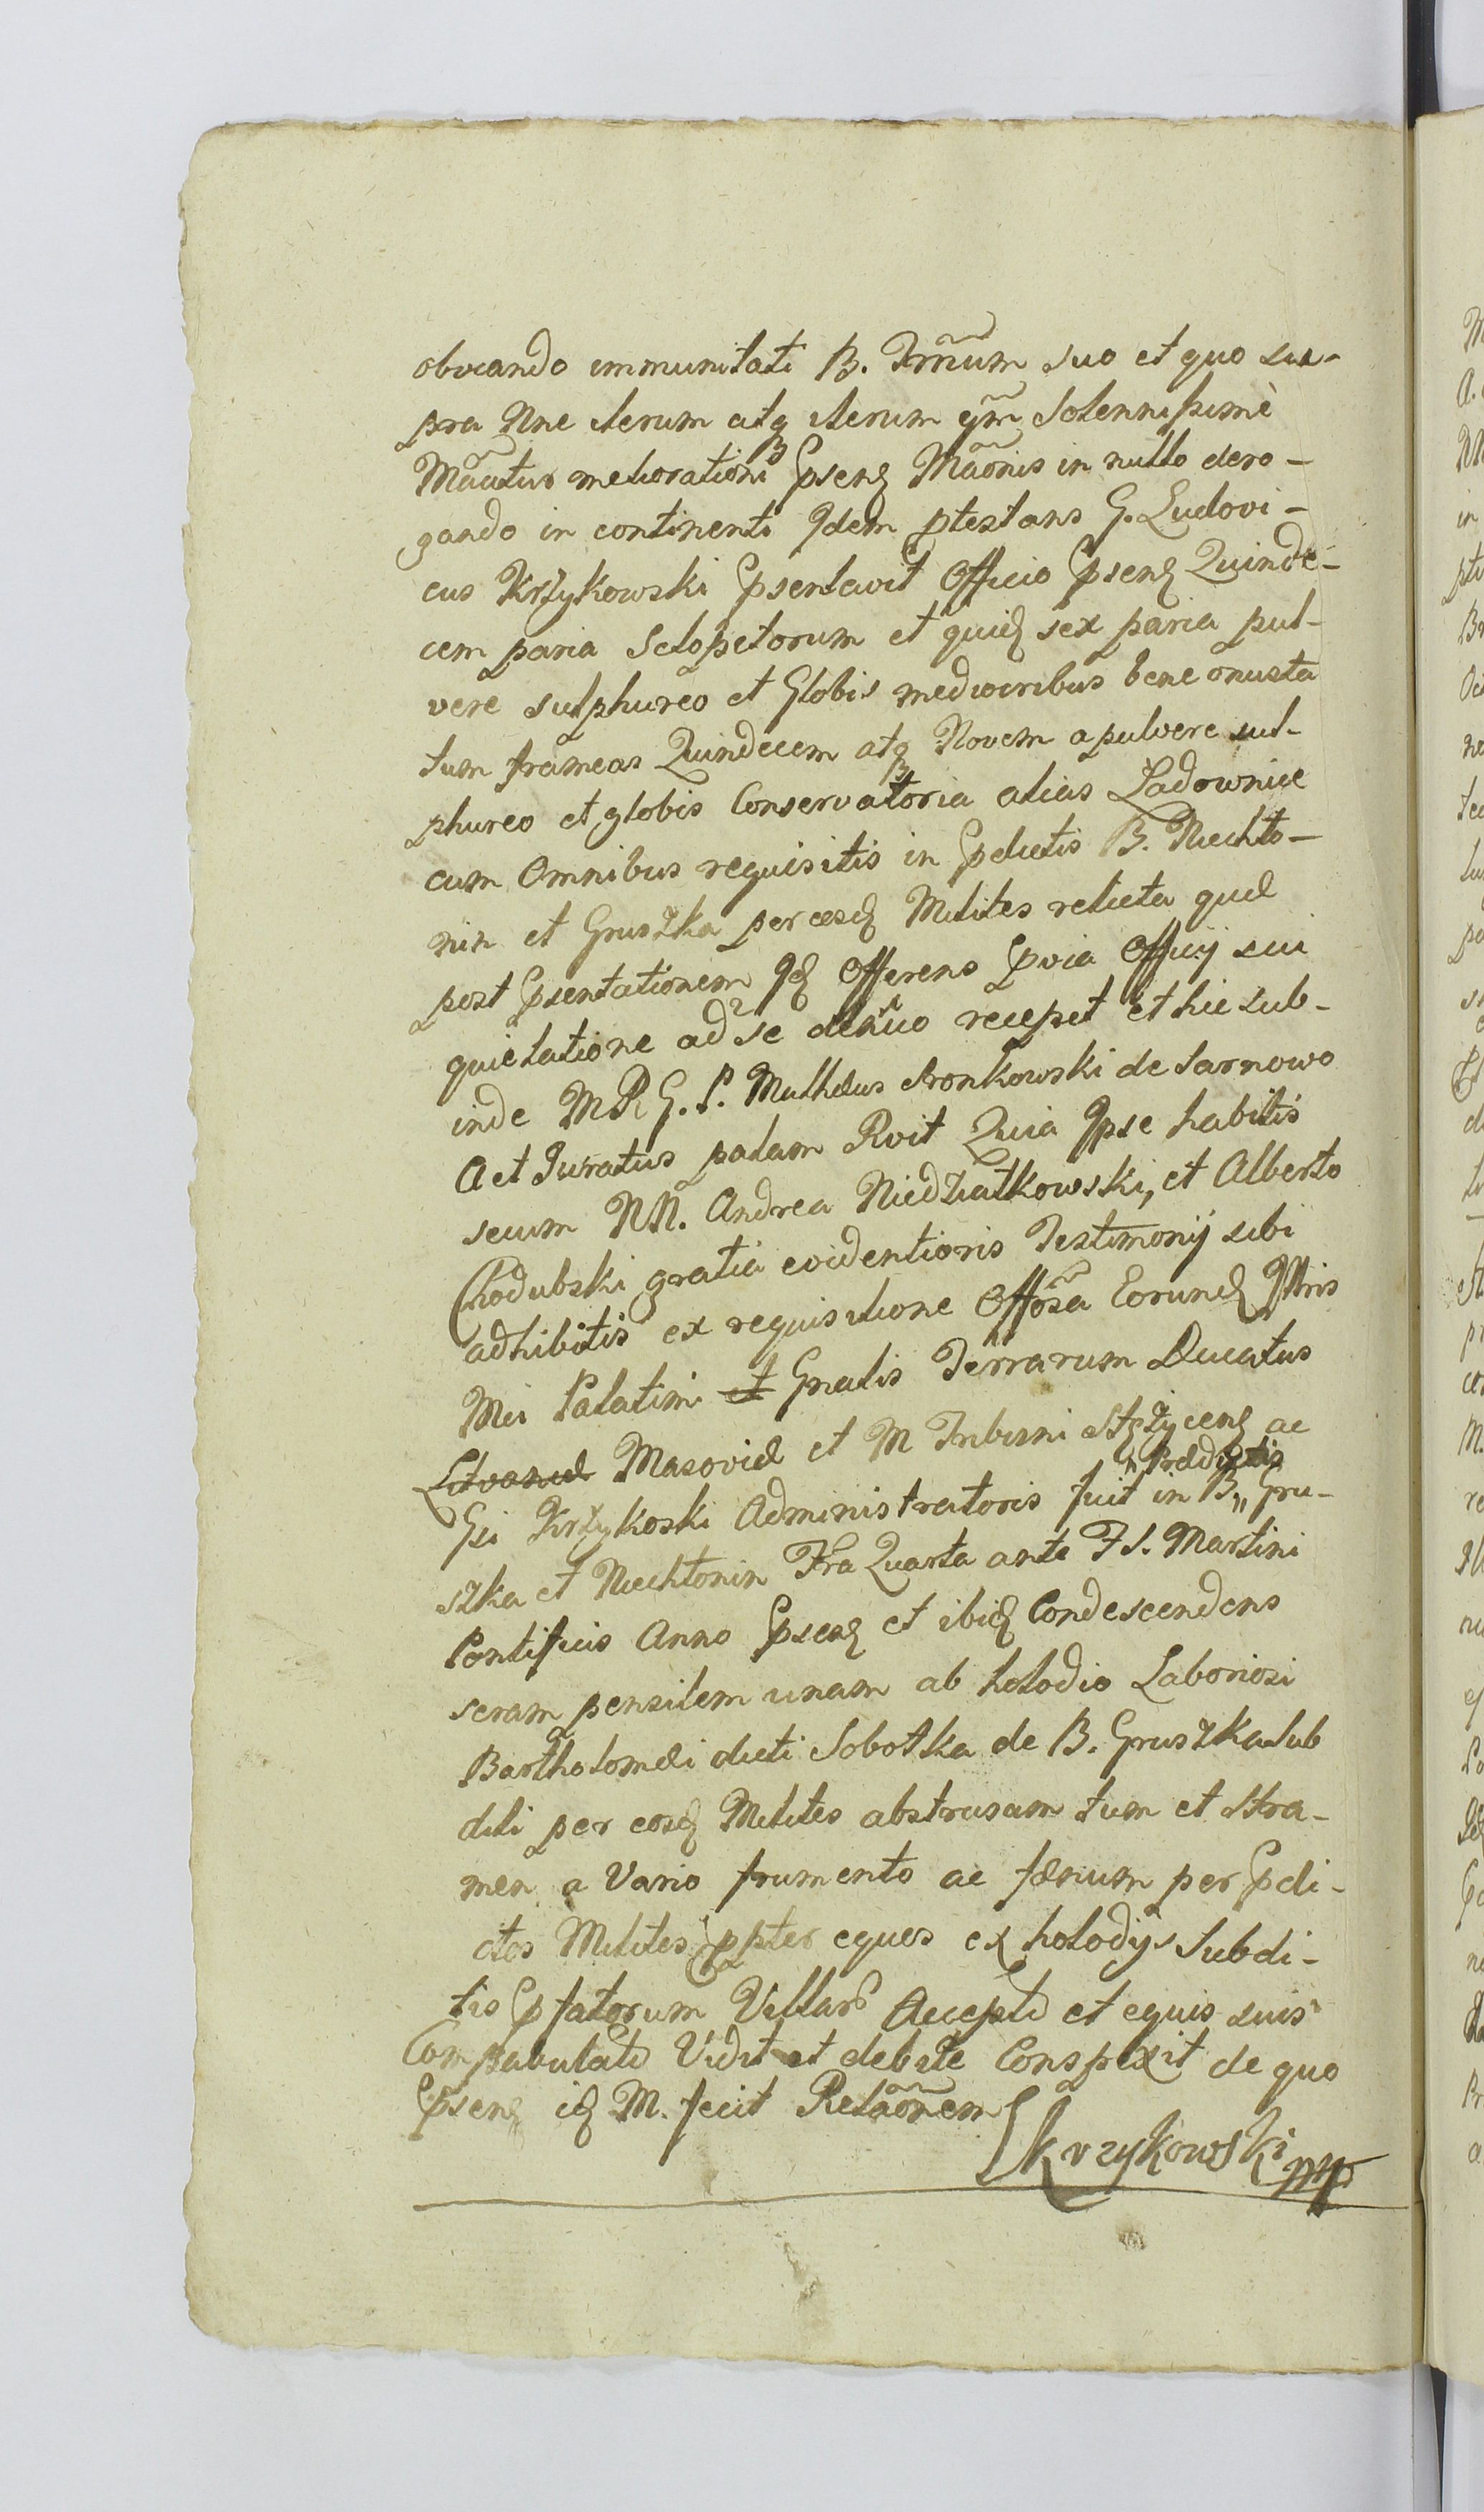 obviando immunitati B. Trnũm suo et quo su-
pra Nne iterum atq iterum qm̃ Solennissimè
Mãatur meliorationi Psenq Mãonis in nullo dero-
gando in continenti Idem ptestans G. Ludovi-
cus Krżykowski Psentavit Officio Psenq Quinde-
cem paria Sclopetorum et quidq sex paria pul-
vere sulphureo et Globis mediocribus bene onusta
tum frameas Quindecem atq Novem a pulvere sul-
phureo et globis Conservatoria alias Ładownice
cum Omnibus requisitis in Pdictis B. Niechto-
nin et Gruszka per eosq Milites relicta quæ
post Psentationem Idq Offerens Pvia Officij sui
quietatione ad se denuo recepit et hic sub-
inde MR G. P. Mathæus Stronkowski de Sarnowo
A et Juratus palam Rvit Quia Ipse habitis
secum NN. Andrea Niedziałkowski, et Alberto
Chodubski gratia evidentioris Testimonij sibi
adhibitis ex requisitione Offosa Eorunq Illris
Mci Palatini et Gnalis Terrarum Ducatus
Litvaniæ Masoviæ et M Tribuni Stężycenq ac
Gsi Krżykoski Administratoris fuit in B,, Gru-
,,Prædictis
szka et Niechtonin Fra Quarta ante F S. Martini
Pontificis Anno Psenq et ibiq Condescendens
seram pensilem unam ab holodio Laboriosi
Bartholomæi dicti Sobotka de B. Gruszka sub
diti per eosq Milites abstrusam tum et Stra-
men a Vario frumento ac fænum per Pdi-
ctos Milites ppter eques ex holodijs Subdi-
tis Pfatorum Villarū Accepto et equis suis
Compabulato Vidit et debite Conspexit de quo
Psenq idq M. fecit Relãonem
Skrzykowski mp